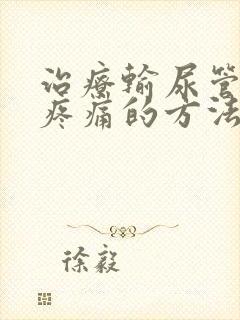 治疗输尿管
疼痛的方法
徐毅